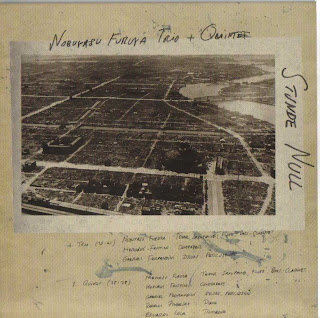 NOBUYASU FURUYA TRIO + QUINTET
STUNDE NULL
A. TRIO
NOBUYASU FURUYA TENOR SAXOPHONE, FLUTE, BASS-CLARINET
HERNANI FAUSTINO CONTRABASS
GABRIEL FERRANDINI DRUMS, PERCUSSION
B. QUINTET
NOBUYASU FURUYA TENOR SAXOPHONE, FLUTE, BASS-CLARINET
HERNANI FAUSTINO CONTRABASS
GABRIEL FERRANDINI DRUMS, PERCUSSION
RODRIGO PINHEIRO PIANO
EDUARDO LALA TROMBONE